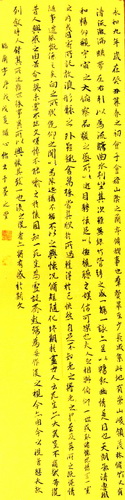 永和九年歲在癸丑暮春之初會于會稽山陰之蘭亭脩稧事也群賢畢至少長咸集此地有崇山峻領茂林脩竹又有
清流激湍暎帶左右引以為流觴曲水列坐其次雖無絲竹管弦之盛一觴一詠亦足以暢敘幽情是日也天朗氣清惠風
和暢仰觀宇宙之大俯察品類之盛所以遊目騁懷足以極視聽之娛信可樂也夫人之相與俯仰一世或取諸懷抱悟言一室
之內或因寄所託放浪形骸之外雖趣舍萬殊靜躁不同當其欣於所遇暫得於己快然自足不知老之將至及其所之既倦情
隨事遷感慨係之矣向之所欣俛仰之間以為陳跡猶不能不以之興懷況脩短隨化終期於盡古人云死生亦大矣豈不痛哉每攬
昔人興感之由若合一契未嘗不臨文嗟悼不能喻之於懷固知一死生為虛誕齊彭殤為妄作後之視今亦由今之視昔悲夫故
列敘時人錄其所述雖世殊事異所以興懷其致一也後之攬者亦將有感於斯文
臨蘭亭序